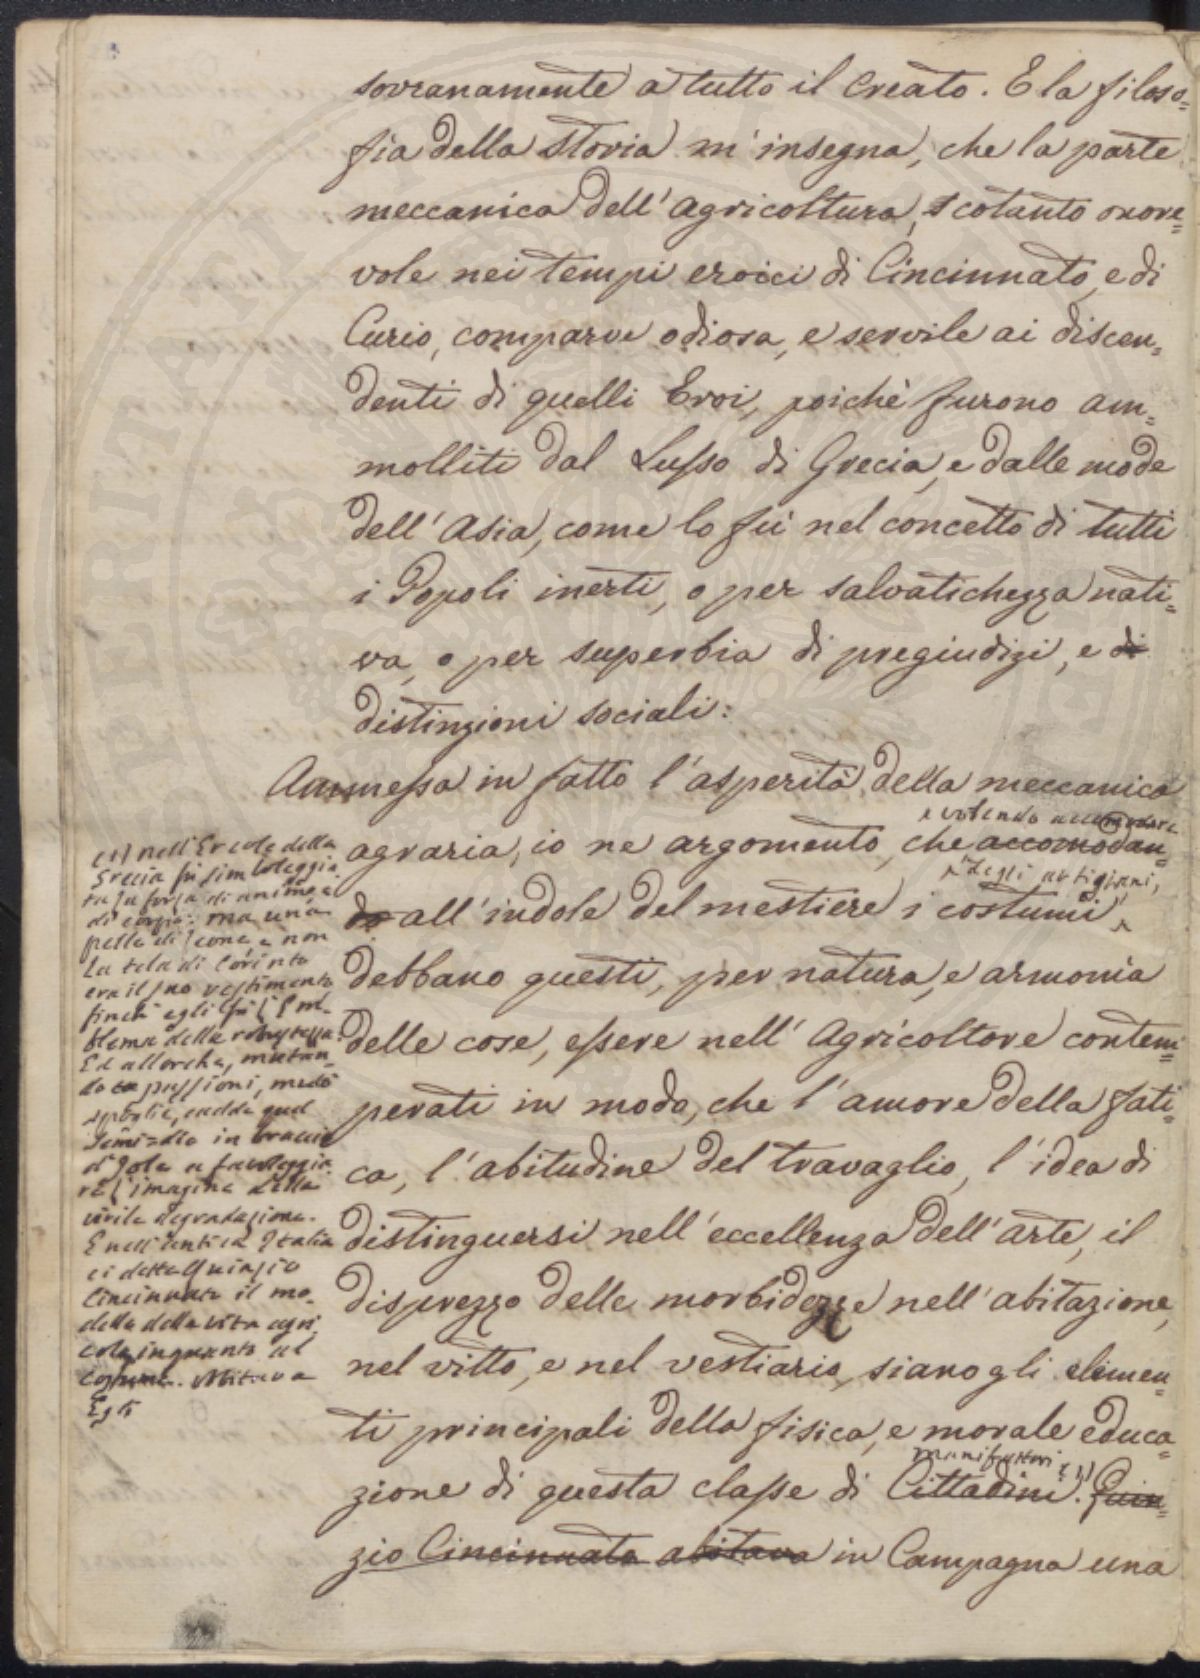 sovranamente a tutto il Creato. E la filoso=
fia della Storia m'insegna, che la parte
meccanica dell'Agricoltura, cotanto onore=
vole nei tempi eroici di Cincinnato, e di
Curio, comparve odiosa, e servile ai discen=
denti di quelli Eroi, poichè furono am=
molliti dal Lusso di Grecia, e dalle mode
dell'Asia, come lo fù nel concetto di tutti
i Popoli inerti, o per salvatichezza nati=
va, o per superbia di pregiudizi, e di
distinzioni sociali:
Ammessa in fatto l'asperità della meccanica
e volendo accomodare
agraria, io ne argomento, che accomodan=
degli artigiani,
do all'indole del mestiere i costumi
debbano questi, per natura, e armonia
delle cose, essere nell'Agricoltore contem=
perati in modo, che l'amore della fati=
ca, l'abitudine del travaglio, l'idea di
distinguersi nell'eccellenza dell'arte, il
disprezzo delle morbidezze nell'abitazione,
nel vitto, e nel vestiario, siano gli elemen=
ti principali della fisica, e morale educa=
manifattori (1)
zione di questa classe di Cittadini. Quin=
zio Cincinnato abitava in Campagna una
(1) nell'Ercole della
Grecia fù simboleggia
ta la forza di anima, e
di corpo: ma una
pelle di leone e non
la tela di Corinto
era il suo vestimento
finchè egli fù l'Em=
blema della robustezza.
Ed allorchè, mutan=
do passioni, mutò
spoglie, cadde quel
Semi=dio in braccio
d'Jole a
re l'imagine della
virile degradazione.
E nell'antica Italia
ci dette Quinzio
Cincinnato il mo=
dello della vita agri
cola inquanto al
costume. Abitava
Egli